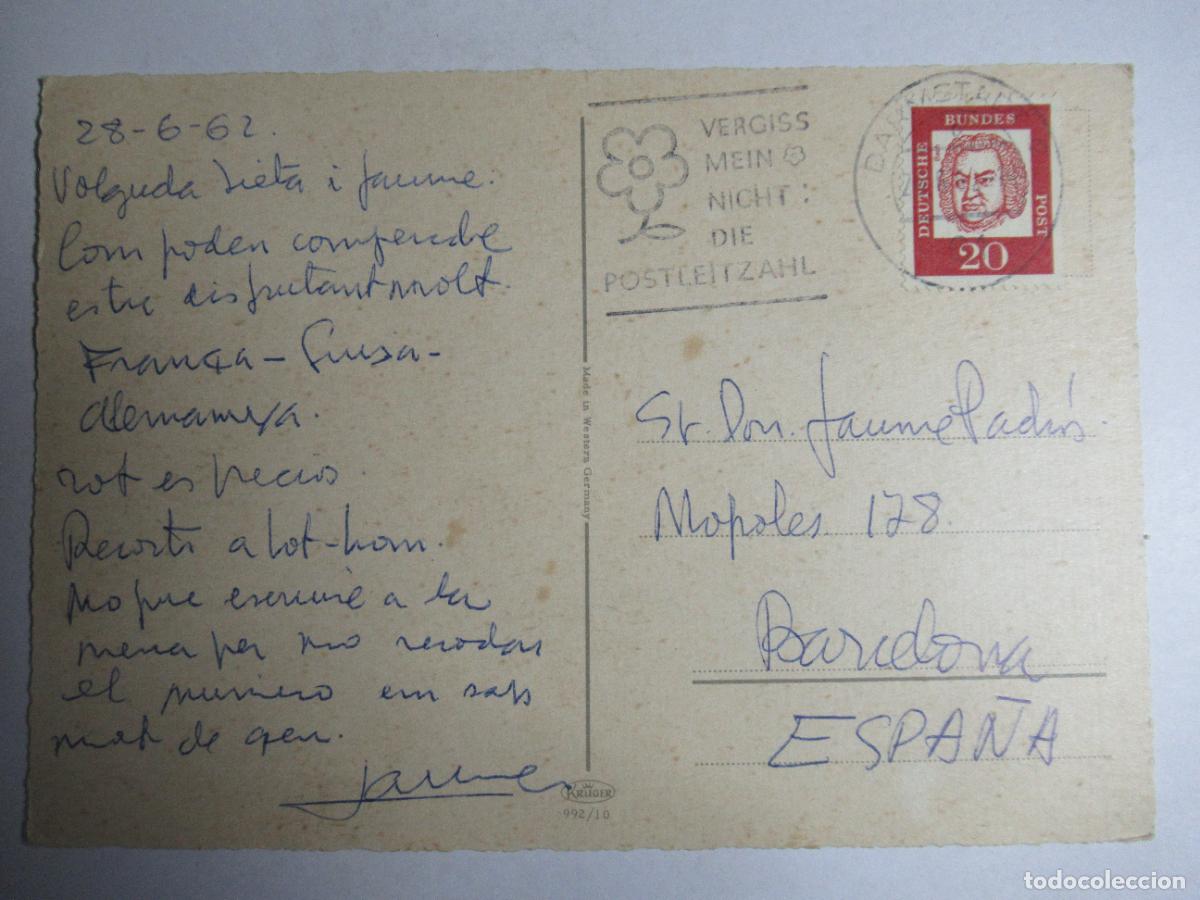 28-6-62.
Volguda Lieta i Jaume.
Com poden compendre
estic disfrutant molt.
França - Suisa -
Alemanya.
tot es precios.
Recorts a tot-hom.
No puc escriure a la
meva per no recordar
el numero em sap
mal de greu.
Jaume
VERGISS
MEIN
NICHT:
DIE
POSTLEITZAHL
DEUTSCHE
BUNDES
POST
20
Made in Western Germany
Sr. Don. Jaume Padrós.
Napoles 178.
Barcelona
ESPAÑA
KRÜGER
992/10
todocoleccion